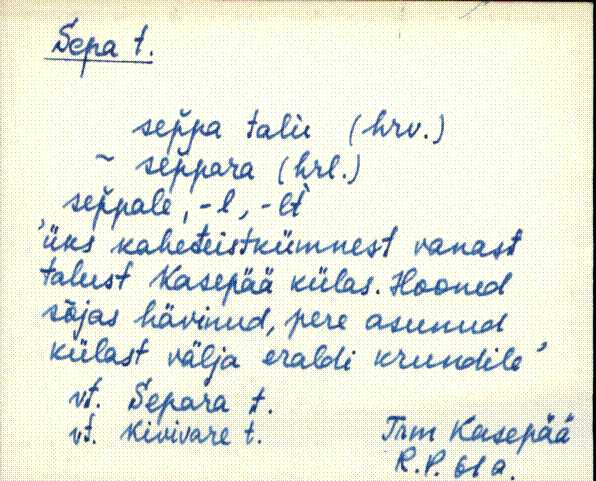 Sepa t.
sep̆pa talu (hrv.)
~ sep̆para (hrl.)
sep̆pale, -l, -lt̀
'üks kaheteistkümnest vanast
talust Kasepää külas. Hooned
sõjas hävinud, pere asunud
külast välja eraldi krundile'
vt. Separa t.
vt. Kivivare t.
Trm Kasepää
R.P. 61 a.